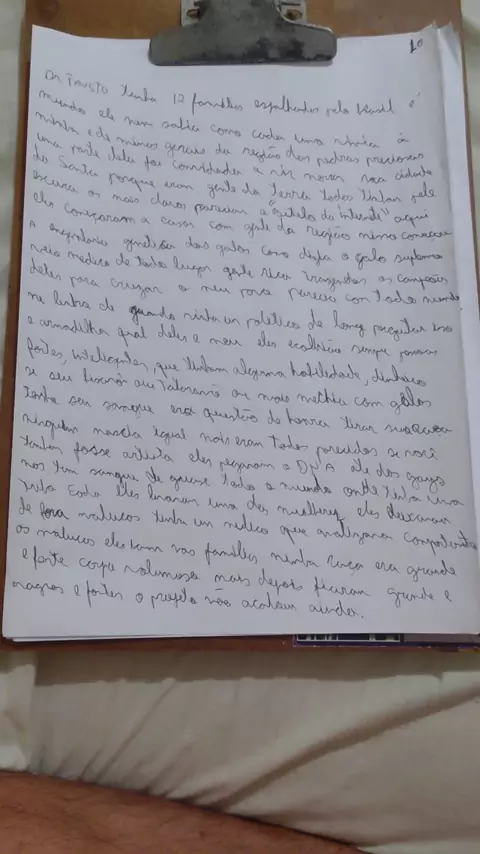 10
Dr. Fausto tinha 12 familhes espalhados pelo Brasil e
mundo ele nem sabia como cada uma vinha a
minha e de minas gerais da região das pedras preciosas
uma parte dela foi convidada a vir morar na cidade
do Santa porque eram gente da Terra todos tinham pele
escura os mais claros pareciam "Sítelo da Internete" aqui
eles começaram a casar com gente da região nisso começou
A engenharia genetica dos galos como dizia o galo supremo
veio medico de todo lugar gente rica trazendo os campeões
deles para cruzar o meu povo parecia com todo mundo.
na linha de quando vinha um politico de longe perguntar isso
e armadilha qual deles e meu eles escolhião sempre pessoas
fortes, inteligentes, que tinham alguma habilidade, dinheiro
se seu bisavô ou mais mechia com galos
tinha seu sangue era questão de honra tirar sua raça
ninguem nascia igual mais eram todos parecidos se você
tanto fosse artista eles pegavam o DNA até dos gringos
nos tem sangue de quase todo o mundo onde tinha uma
eles levavam uma das mulheres eles deixavam
de fora malucos tinha um medico que analizava
os malucos eles nas familias minha raça era grande
e forte corpo volumoso mais depois ficaram grande e
magros e fortes o projeto não acabou ainda.